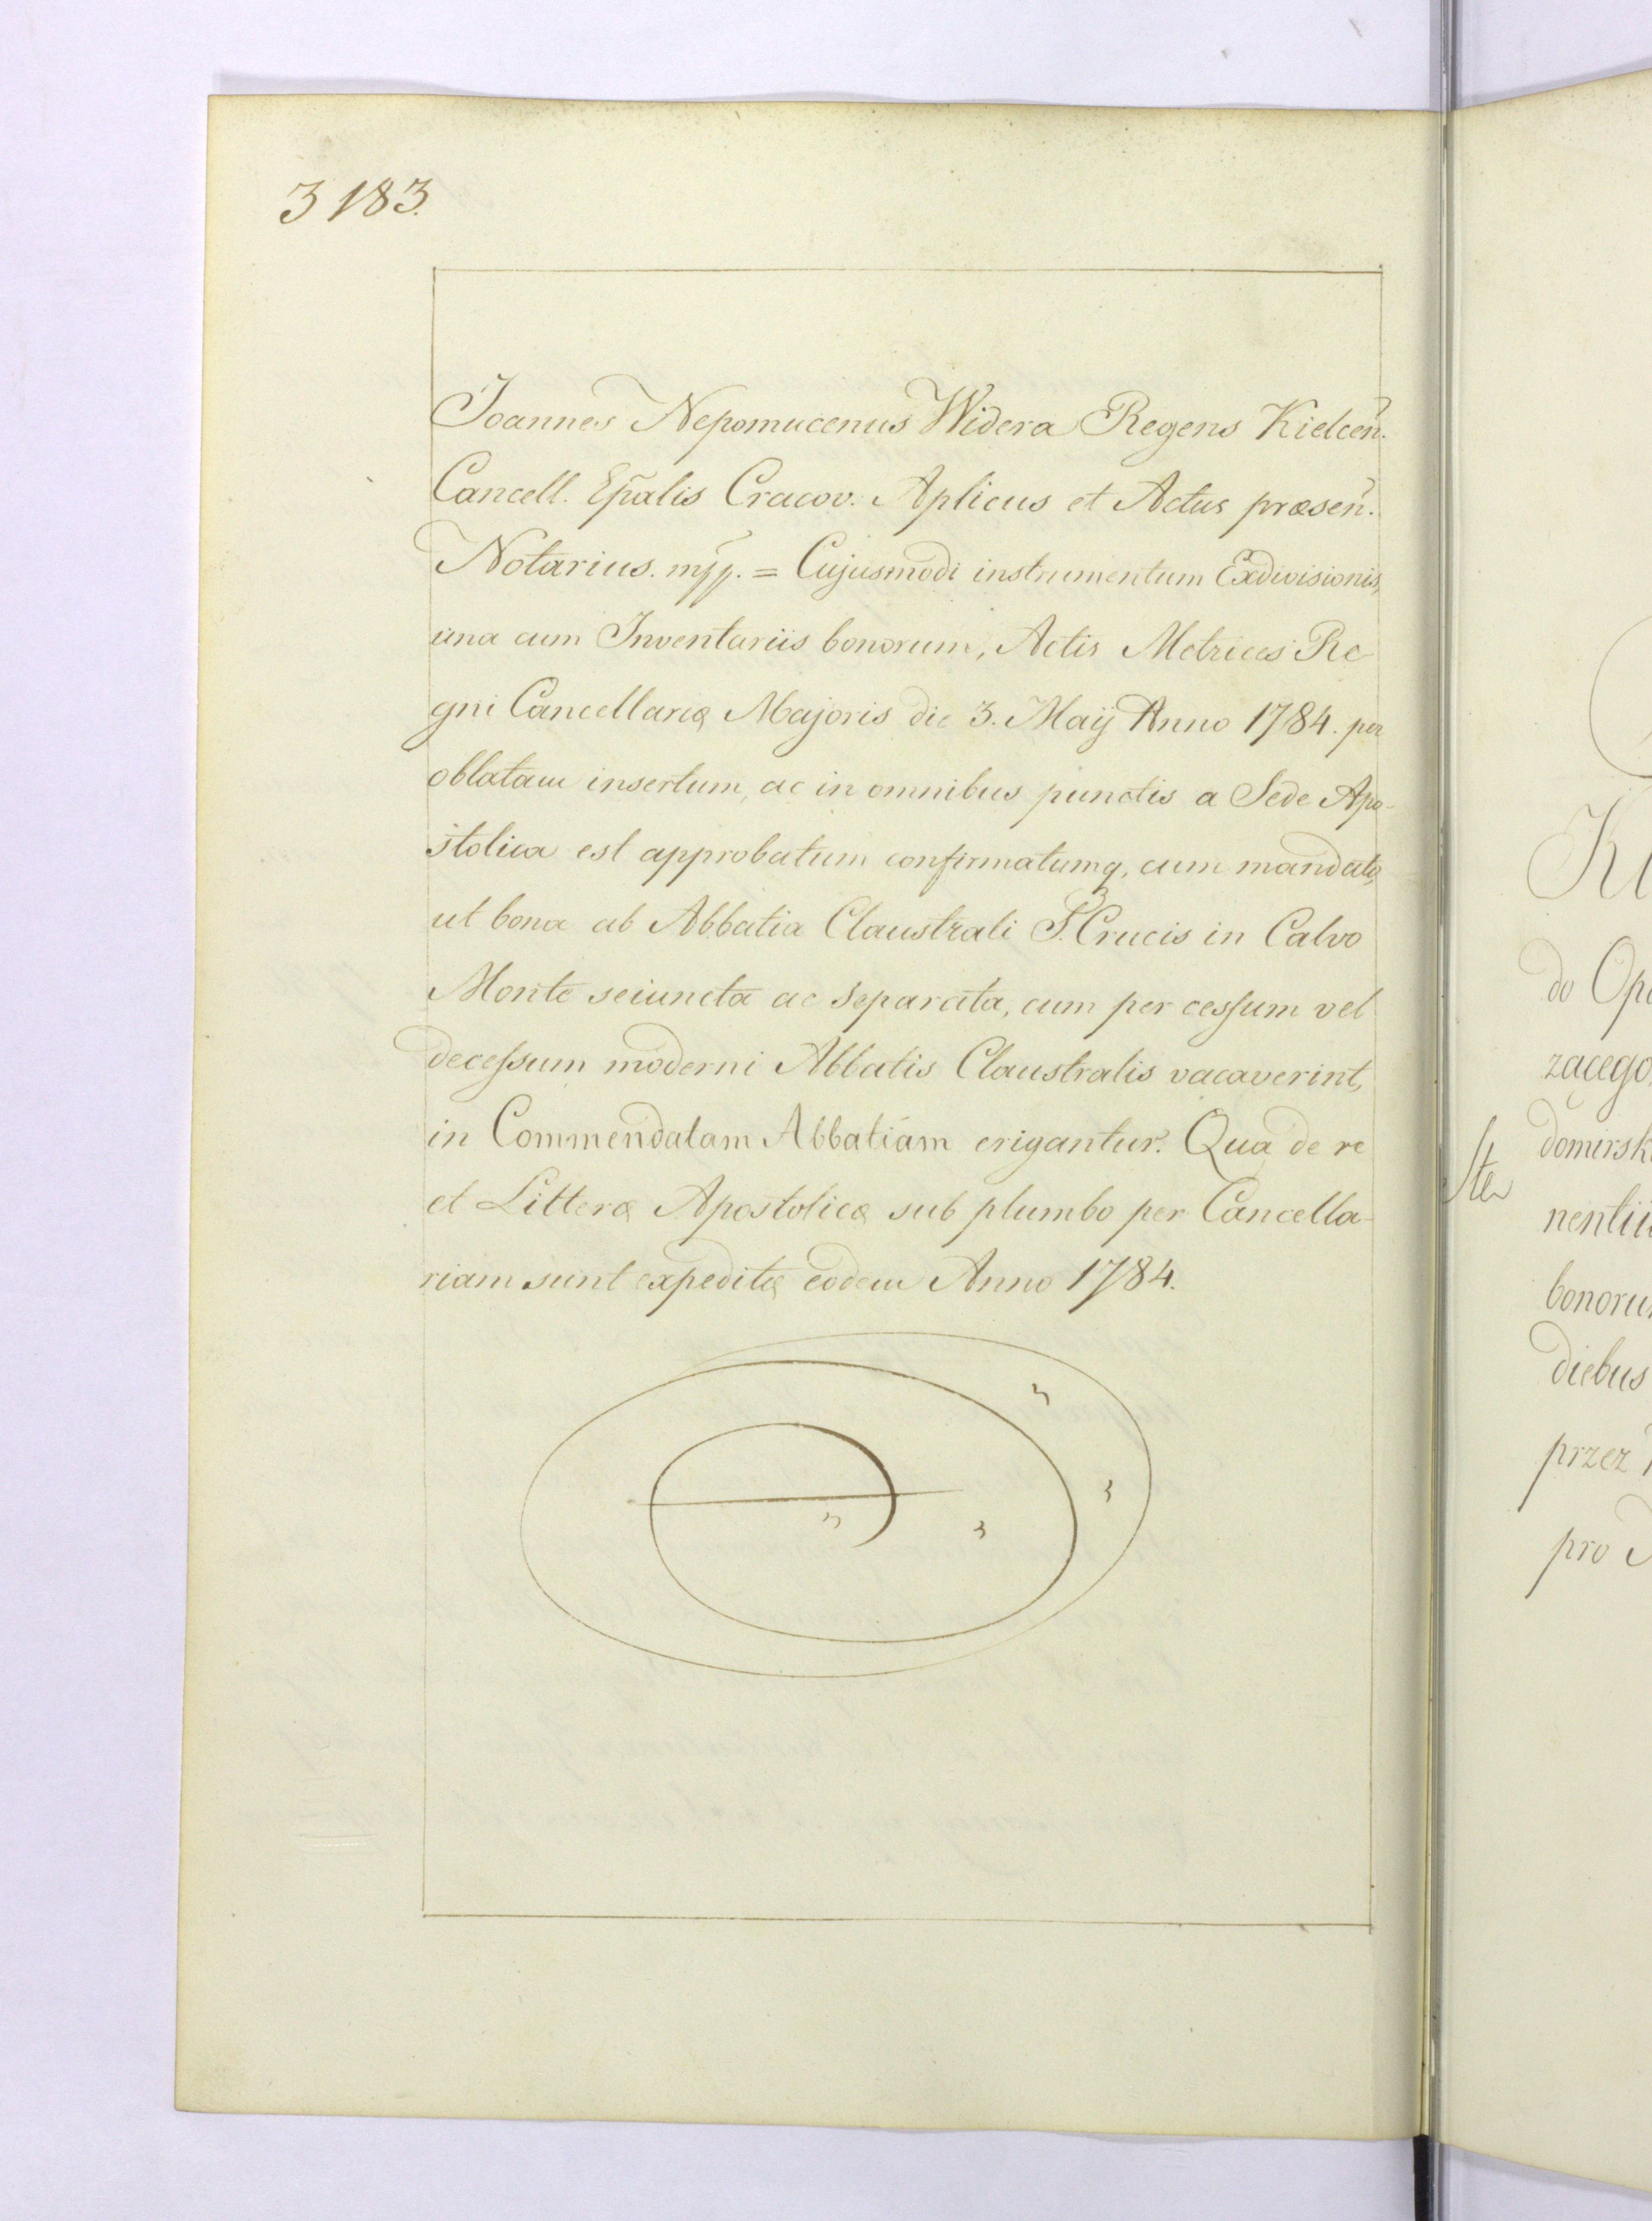 3183.
Joannes Nepomucenus Widera Regens Kielceñ.
Cancell. Epãlis Cracov. Aplicus et Actus præseñ.
Notarius. mpp. = Cujusmodi instrumentum Exdivisionis,
una cum Inventariis bonorum, Actis Metrices Re
gni Cancellariæ Majoris die 3. Maij Anno 1784. per
oblatam insertum, ac in omnibus punctis a Sede Apo-
stolica est approbatum confirmatumq, cum mandato,
ut bona ab Abbatia Claustrali S. Crucis in Calvo
Monte seiuncta ac separata, cum per cessum vel
decessum moderni Abbatis Claustralis vacaverint,
in Commendatam Abbatiam erigantur. Qua de re
et Litteræ Apostolicæ sub plumbo per Cancella-
riam sunt expeditæ eodem Anno 1784.
do Op
zącego
domirsk
nentii
bonoru
diebus
przez
pro